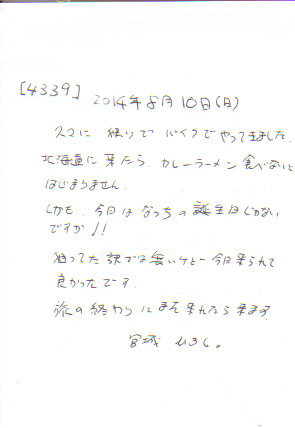 [4339]
2014年8月10日(日)
スマに 独りで バイクで やって来ました。
北海道に 来たら、カレーラーメン 食べないと
はじまりません。
しかも、今日は なっちの 誕生日じゃない
ですか!!
狙ってた 訳では 無いケド 今日来られて
良かったです。
旅の 終わりに また 来れたら 来ます。
宮城